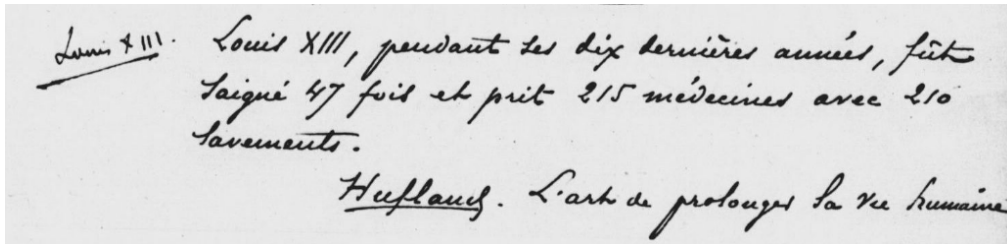 Louis XIII.
Louis XIII, pendant ses dix dernières années, fût
saigné 47 fois et prit 215 médecines avec 210
lavements.
Hufland. L'art de prolonger la vie humaine